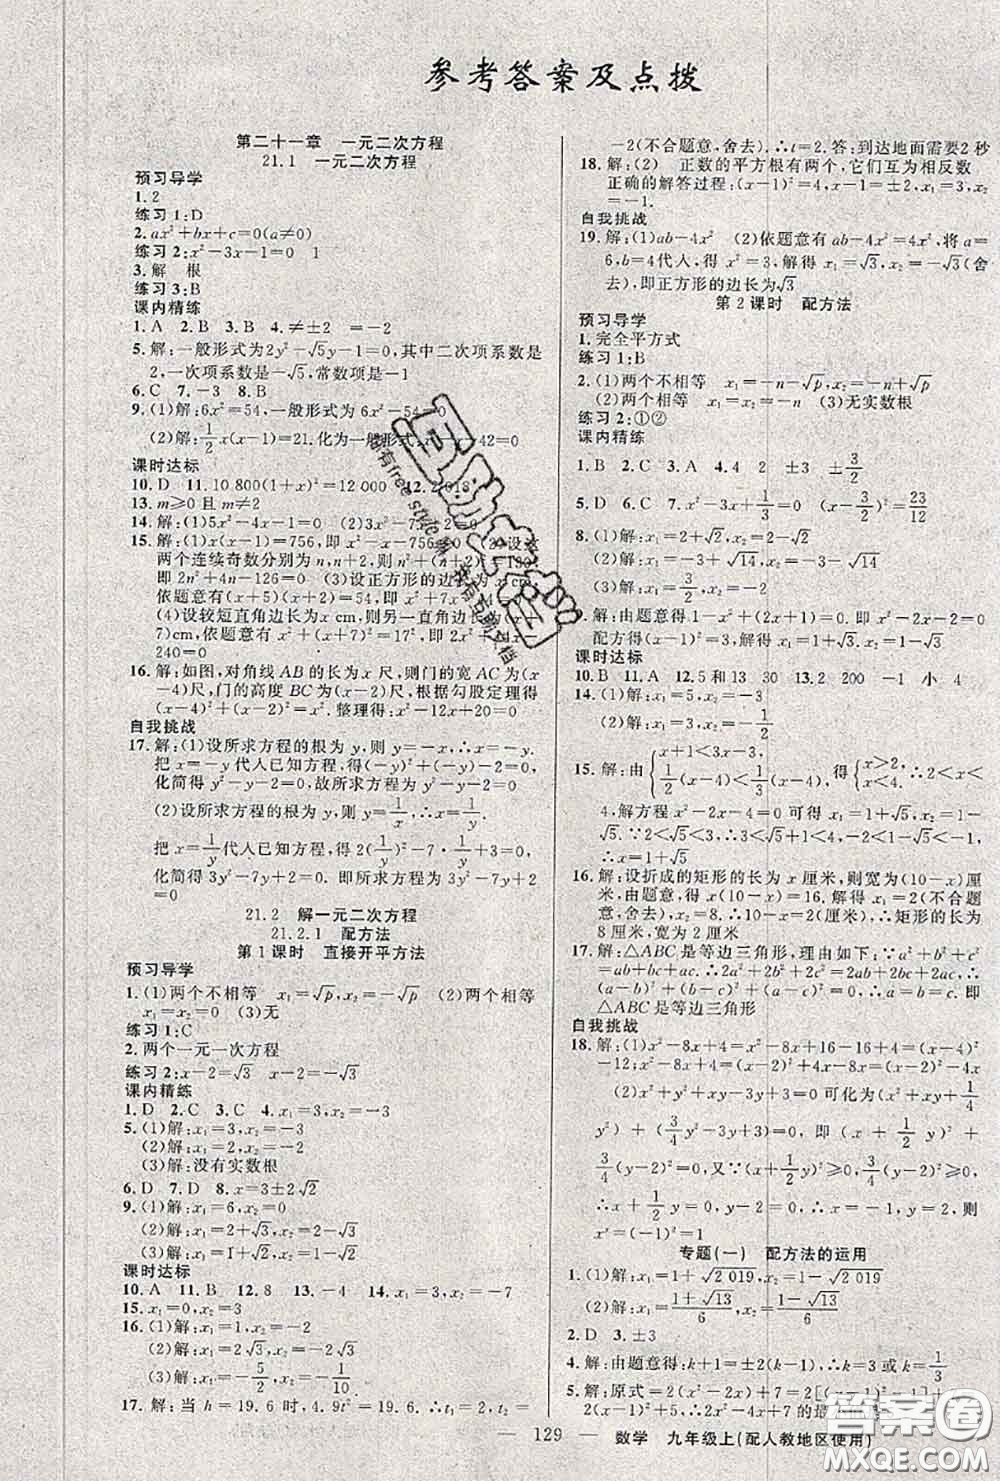 参考答案及点拨
第二十一章 一元二次方程
21.1 一元二次方程
预习导学
1.2
练习1:D
2.ax²+bx+c=0(a≠0)
练习2:x²-3x-1=0 1
3.解 根
练习3:B
课内精练
1.A 2.B 3.B 4.≠±2 =-2
5.解:一般形式为2y²-√5y-1=0,其中二次项系数是
2,一次项系数是-√5,常数项是-1
6.C 7.-3 8.B
9.(1)解:6x²=54,一般形式为6x²-54=0
(2)解:1/2x(x-1)=21.化为一般形式 -42=0
课时达标
10.D 11.10 800(1+x)²=12 000 12.2 018
13.m≥0且m≠2
14.解:(1)5x²-4x-1=0 (2)
15.解:(1)x(x-1)=756,即x²-x-756=0 (2)设
两个连续奇数分别为n,n+2,依题意有n²+(n+2)²=
即2n²+4n-126=0 (3)设正方形的边长为
依题意有(x+5)(x+2)=
(4)设较短直角边长为x cm,则另一直角边长为
7)cm,依题意有x²+(x+7)²=17²,即
240=0
16.解:如图,对角线AB的长为x尺,则门的宽AC为(x
-4)尺,门的高度BC为(x-2)尺,根据勾股定理得
(x-4)²+(x-2)²=x².整理得:x²-12x+20=0
自我挑战
17.解:(1)设所求方程的根为y,则y=-x∴x=-y.
把x=-y代入已知方程,得(-y)²+(-y)-2=0.
化简得y²-y-2=0.故所求方程为y²-y-2=0
(2)设所求方程的根为y,则y=1/x∴x=1/y
把x=1/y代入已知方程,得2(1/y)²-7·1/y+3=0,
化简得3y²-7y+2=0.即所求方程为3y²-7y+2
=0
21.2 解一元二次方程
21.2.1 配方法
第1课时 直接开平方法
预习导学
1.(1)两个不相等 x₁=-√p,x₂=√p (2)两个相等
x₁=x₂=0 (3)无
练习1:C
2.两个一元一次方程
练习2:x-2=√3 x-2=-√3
课内精练
1.D 2.C 3.C 4.x₁=3,x₂=-3
5.(1)解:x₁=3,x₂=-3
(2)解:x₁=3,x₂=-3
(3)解:没有实数根
6.D 7.D 8.x=3±2√2
9.(1)解:x₁=6,x₂=0
(2)解:x₁=2+√3,x₂=2-√3
(3)解:x₁=1+√2,x₂=1-√2
课时达标
10.A 11.B 12.8 13.-4 14.x=3,x=-7
15.x₁=0,x₂=2
16.(1)解:x₁=1,x₂=-2
(2)解:x₁=2√3,x₂=-2√3
(3)解:x₁=-5/2,x₂=-1/10
17.解:当h=19.6时,4.9t²=19.6.∴t₁=2,t₂=
-2(不合题意,舍去).∴t=2.答:到达地面需要2秒
18.解:(2) 正数的平方根有两个,它们互为相反数
正确的解答过程:(x-1)²=4,x-1=±2,x₁=3,x₂
=-1.
自我挑战
19.解:(1)ab-4x² (2)依题意有ab-4x²=4x²,将a=
6,b=4代入,得x²=3,解得x₁=√3,x₂=-√3(舍
去),即正方形的边长为√3
第2课时 配方法
预习导学
1.完全平方式
练习1:B
2.(1)两个不相等 x₁=-n-√p,x₂=-n+√p
(2)两个相等 x₁=x₂=-n (3)无实数根
练习2:①②
课内精练
1.B 2.C 3.A 4.4 2 ±3 ±3/2
5.D 6.C 7.x²-3x+1/3=0 (x-3/2)²=23/12
8.(1)解:x₁=2+√2,x₂=2-√2
(2)解:x₁=-3-√14,x₂=-3+√14
(3)解:x₁=3/2,x₂=-1
9.解:由题意得1-x²+2(2x+1)=0,即x²-2x-2=0
配方得(x-1)²=3,解得x₁=1+√3,x₂=1-√3
课时达标
10.B 11.A 12.5和13 30 13.2 200 -1 小 4
14.(1)解:x₁=5,x₂=-3
(2)解:x₁=3/2,x₂=-1/2
15.解:由{x+1<3x-3, 1/2(x-4)<1/3(x-4), 得{x>2, x<4,∴2<x<
4,解方程x²-2x-4=0得x₁=1+√5,x₂=1-√5.
∵2<√5<3,∴3<1+√5<4,-2<1-√5<-1.
∴x=1+√5
16.解:设折成的矩形的长为x厘米,则宽为(10-x)厘
米,由题意,得x(10-x)=16.解得x₁=2(不合题
意,舍去),x₂=8.∴10-x=2(厘米),∴矩形的长为
8厘米,宽为2厘米.
17.解:△ABC是等边三角形,理由如下:∵a²+b²+c²
=ab+bc+ac,∴2a²+2b²+2c²=2ab+2bc+2ac,∴
(a-b)²+(b-c)²+(a-c)²=0.∴a=b=c.即
△ABC是等边三角形
自我挑战
18.解:(1)x²-8x+4=x²-8x+16-16+4=(x-4)²
-12;x²-8x+4=x²-4x+4-4x=(x-2)²-4x
(2)x²+y²+xy-3y+3=0可化为(x²+xy+1/4
y²)+(3/4y²-3y+3)=0,即(x+1/2y)²+
3/4(y-2)²=0,∵(x+1/2y)²≥0,3/4(y-2)²≥0,
∴x+1/2y=0,y-2=0,∴x=-1,y=2,则
x^y=(-1)²=1
专题(一) 配方法的运用
1.(1)解:x₁=1+√2 019,x₂=1-√2 019
(2)解:x₁=(1+√13)/6,x₂=(1-√13)/6
2.D 3.±3
4.解:由题意得:k+1=±2(k-1),∴k=3或k=1/3
5.解:原式=2(x²-2x)+7=2[(x-1)²-1]+7
=2(x-1)²+5
129
数学 九年级上(配人教地区使用)
答案圈